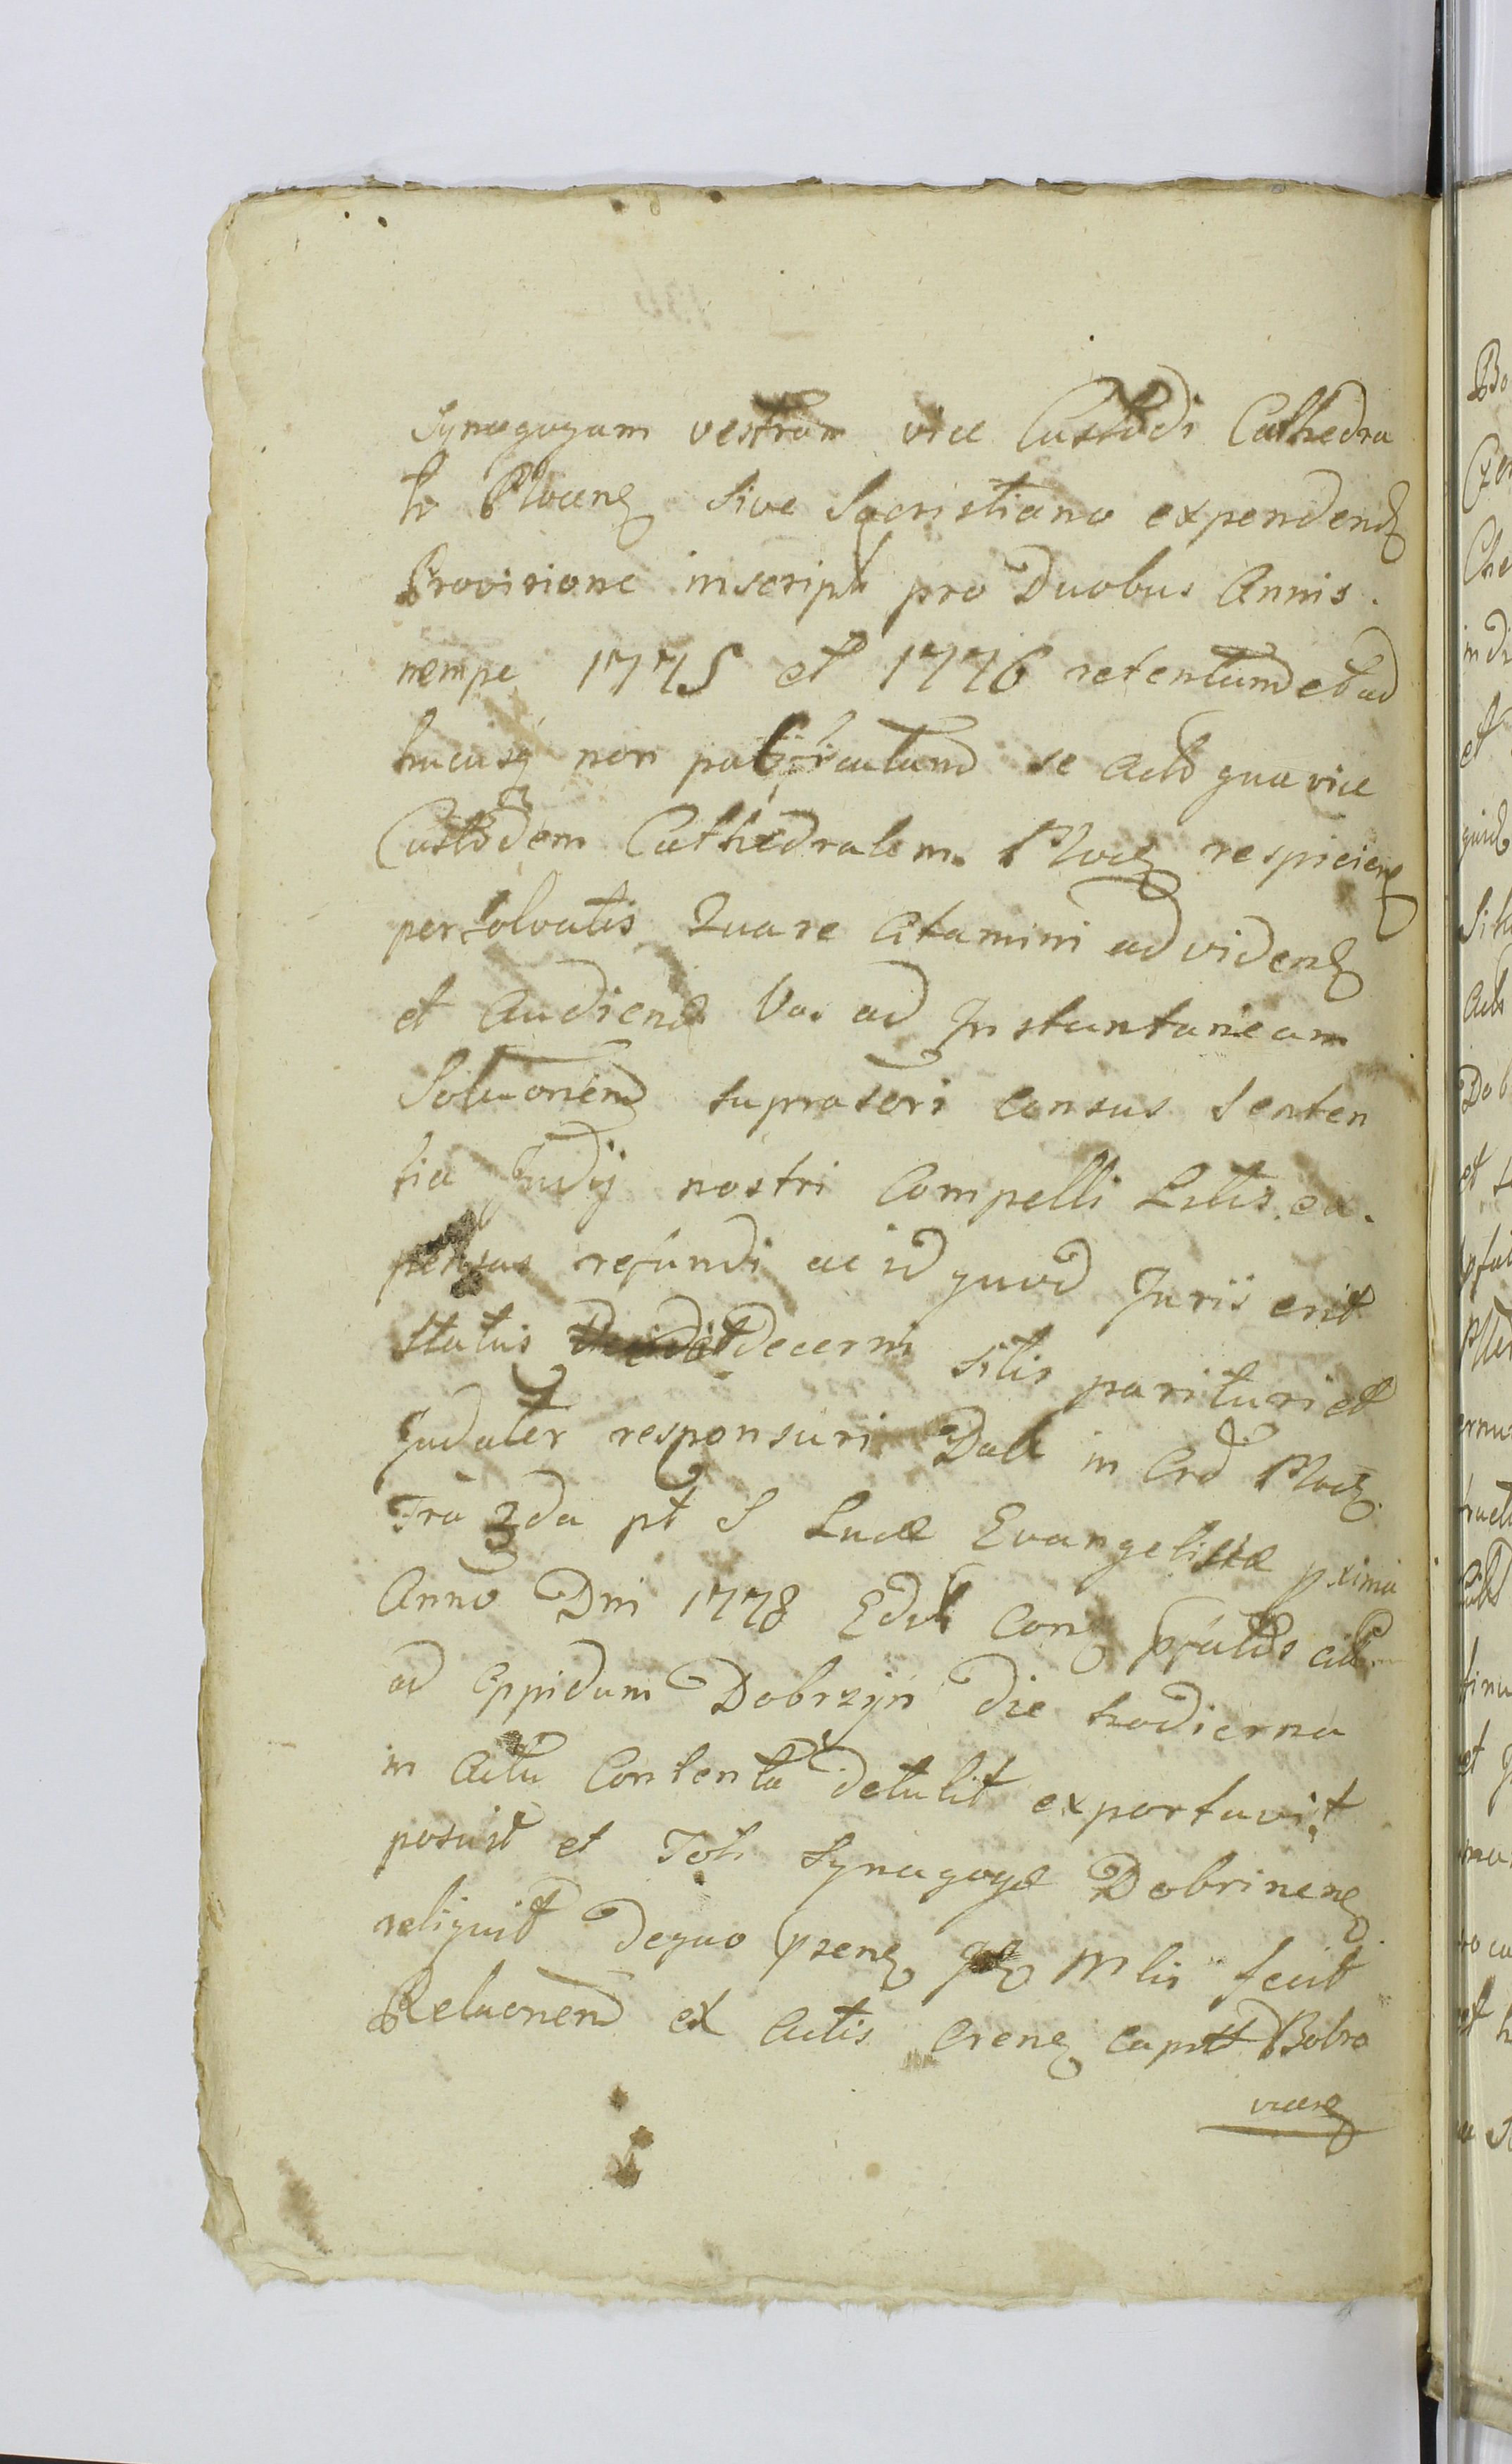 Synagogam vestram vice Custodi Cathedra
li Plocen sive Sacristiano expendend
Provisione inscript pro Duobus Annis.
nempe 1775 et 1776 retentum et ad
hucusq non se Actō qua vice
Custodem Cathedralem Ploc respicien
persolvatis Quare Citamini ad viden
et Audiend Vos ad Instantaneam
Soluonem suprascri Census Senten
tia Judij nostri Compelli Litis ex.
pensas refundi ac id quod Juris erit
statuis decerni sitis parituri et
Judaler responsuri Datt in Crd Ploc
Fra 2da pt S Lucæ Evangelistæ pxima
Anno Dni 1778 Edit Con pfatis citt
ad Oppidum Dobrzyn die hodierna
in Actu Contenta detulit exportavit
posuit et Toti Synagogæ Dobrinen
reliquit dequo psen Mlis fecit
Relaonem ex Actis Cren Capit Bobro
vicen